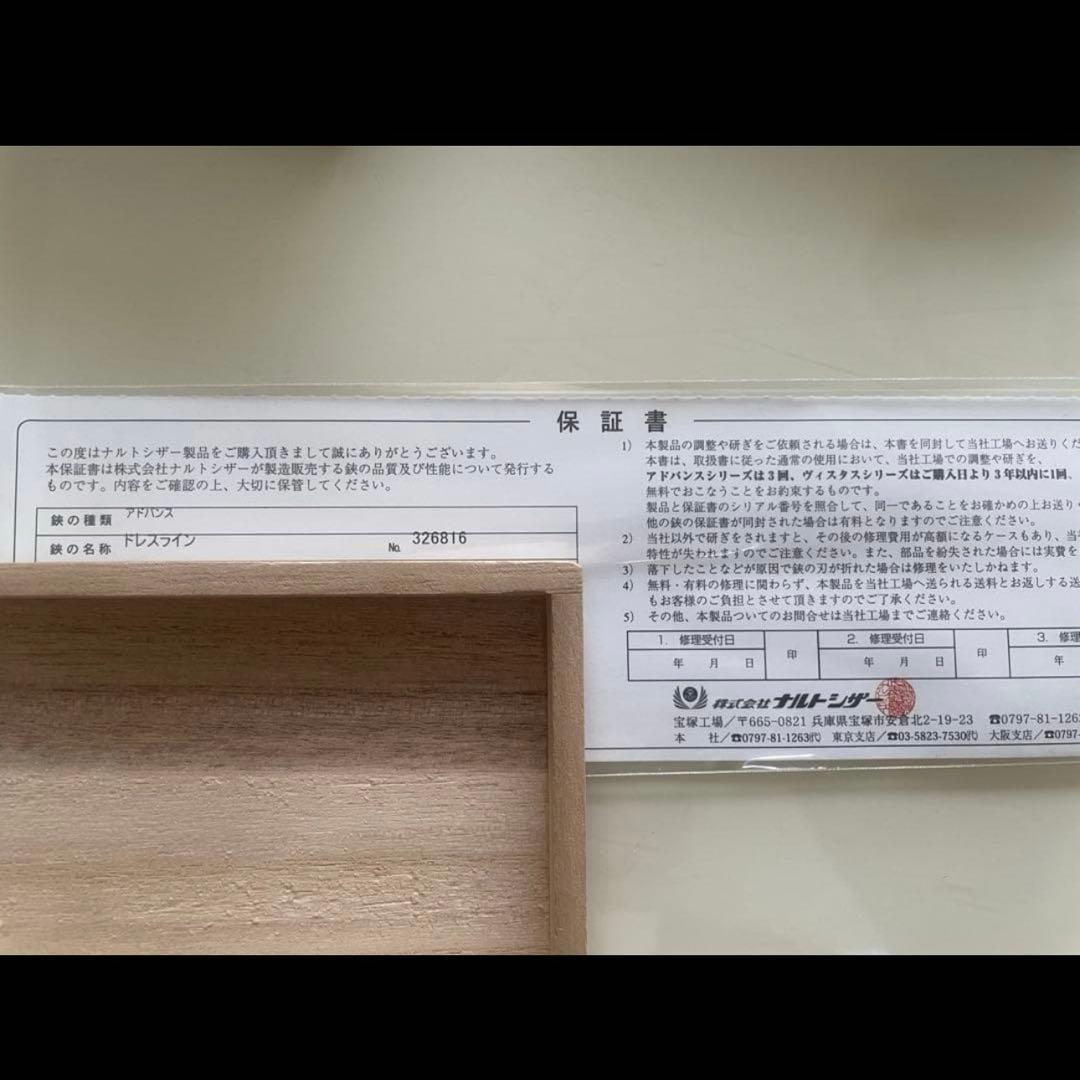 保証書
この度はナルトシザー製品をご購入頂きまして誠にありがとうございます。
本保証書は株式会社ナルトシザーが製造販売する鋏の品質及び性能について発行する
ものです。内容をご確認の上、大切に保管してください。
鋏の種類 アドバンス
鋏の名称 ドレスライン № 326816
1) 本製品の調整や研ぎをご依頼される場合は、本書を同封して当社工場へお送りくだ
本書は、取扱書に従った通常の使用において、当社工場での調整や研ぎを、
アドバンスシリーズは3回、ヴィスタスシリーズはご購入日より3年以内に1回、
無料でおこなうことをお約束するものです。
製品と保証書のシリアル番号を照合して、同一であることをお確かめの上お送り
他の鋏の保証書が同封された場合は有料となりますのでご注意ください。
2) 当社以外で研ぎをされますと、その後の修理費用が高額になるケースもあり、当
特性が失われますのでご注意ください。また、部品を紛失された場合には実費を
3) 落下したことなどが原因で鋏の刃が折れた場合は修理をいたしかねます。
4) 無料・有料の修理に関わらず、本製品を当社工場へ送られる送料とお返しする送
もお客様のご負担とさせて頂きますのでご了承ください。
5) その他、本製品についてのお問合せは当社工場までご連絡ください。
1. 修理受付日 印 2. 修理受付日 印 3. 修理
年 月 日 年 月 日 年
株式会社ナルトシザー
宝塚工場/〒665-0821 兵庫県宝塚市安倉北2-19-23 ☎0797-81-1263
本 社/☎0797-81-1263㈹ 東京支店/☎03-5823-7530㈹ 大阪支店/☎0797-